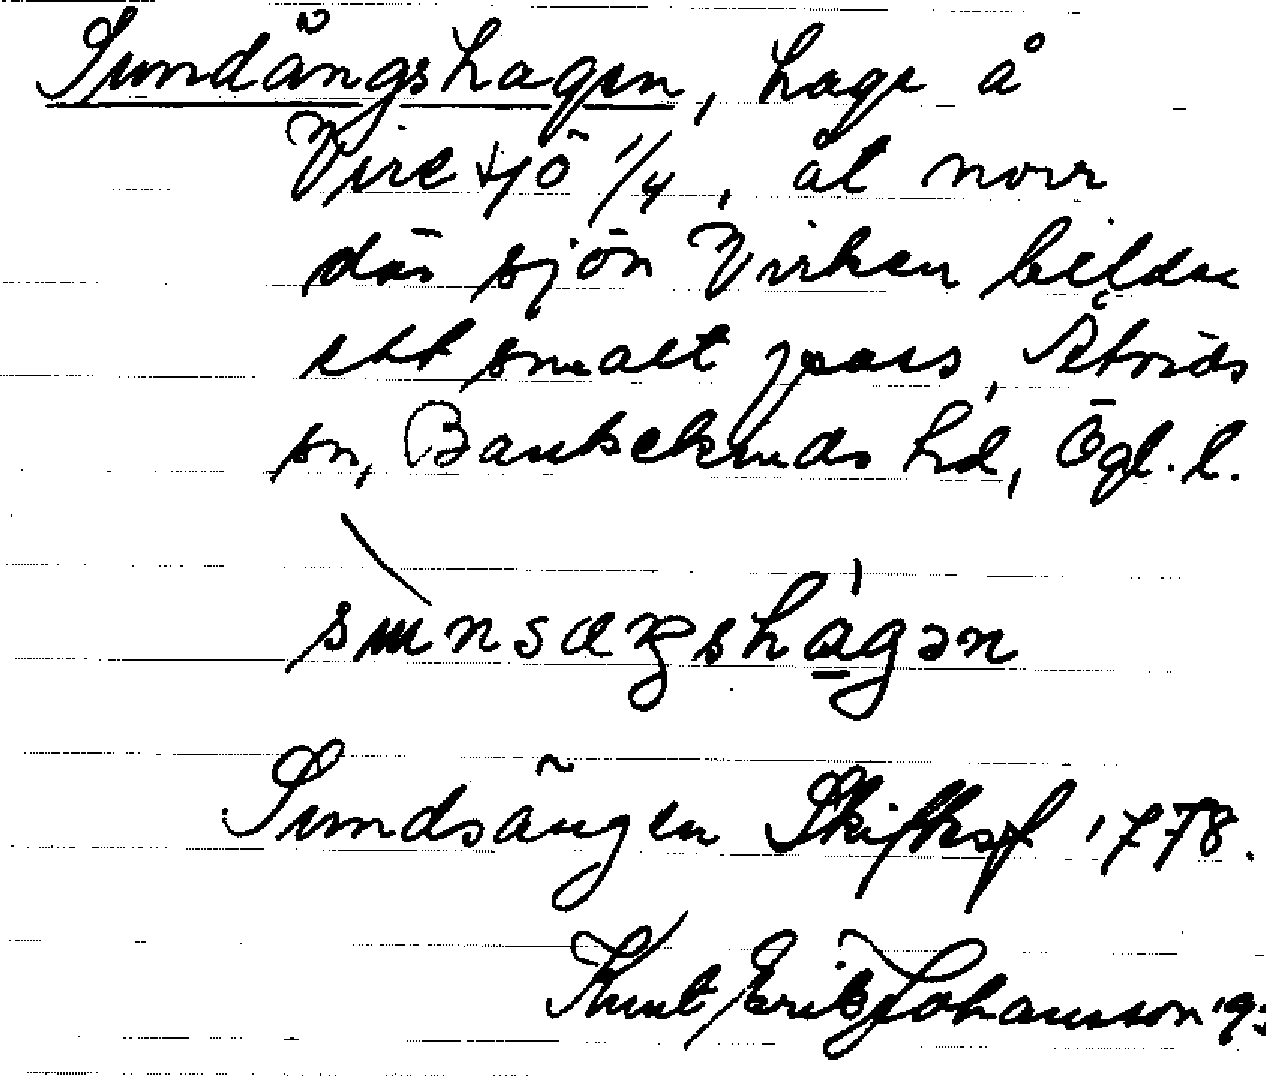 Sundängshagen, hage å
Viresjö 1/4, åt norr
där sjön Virken bildar
ett smalt pass, Åtvids
sn, Bankekinds hd, Ögl. l.
sunsæŋshágən
Sundsängen Skiftesf 1778.
Knut Erik Johansson 193